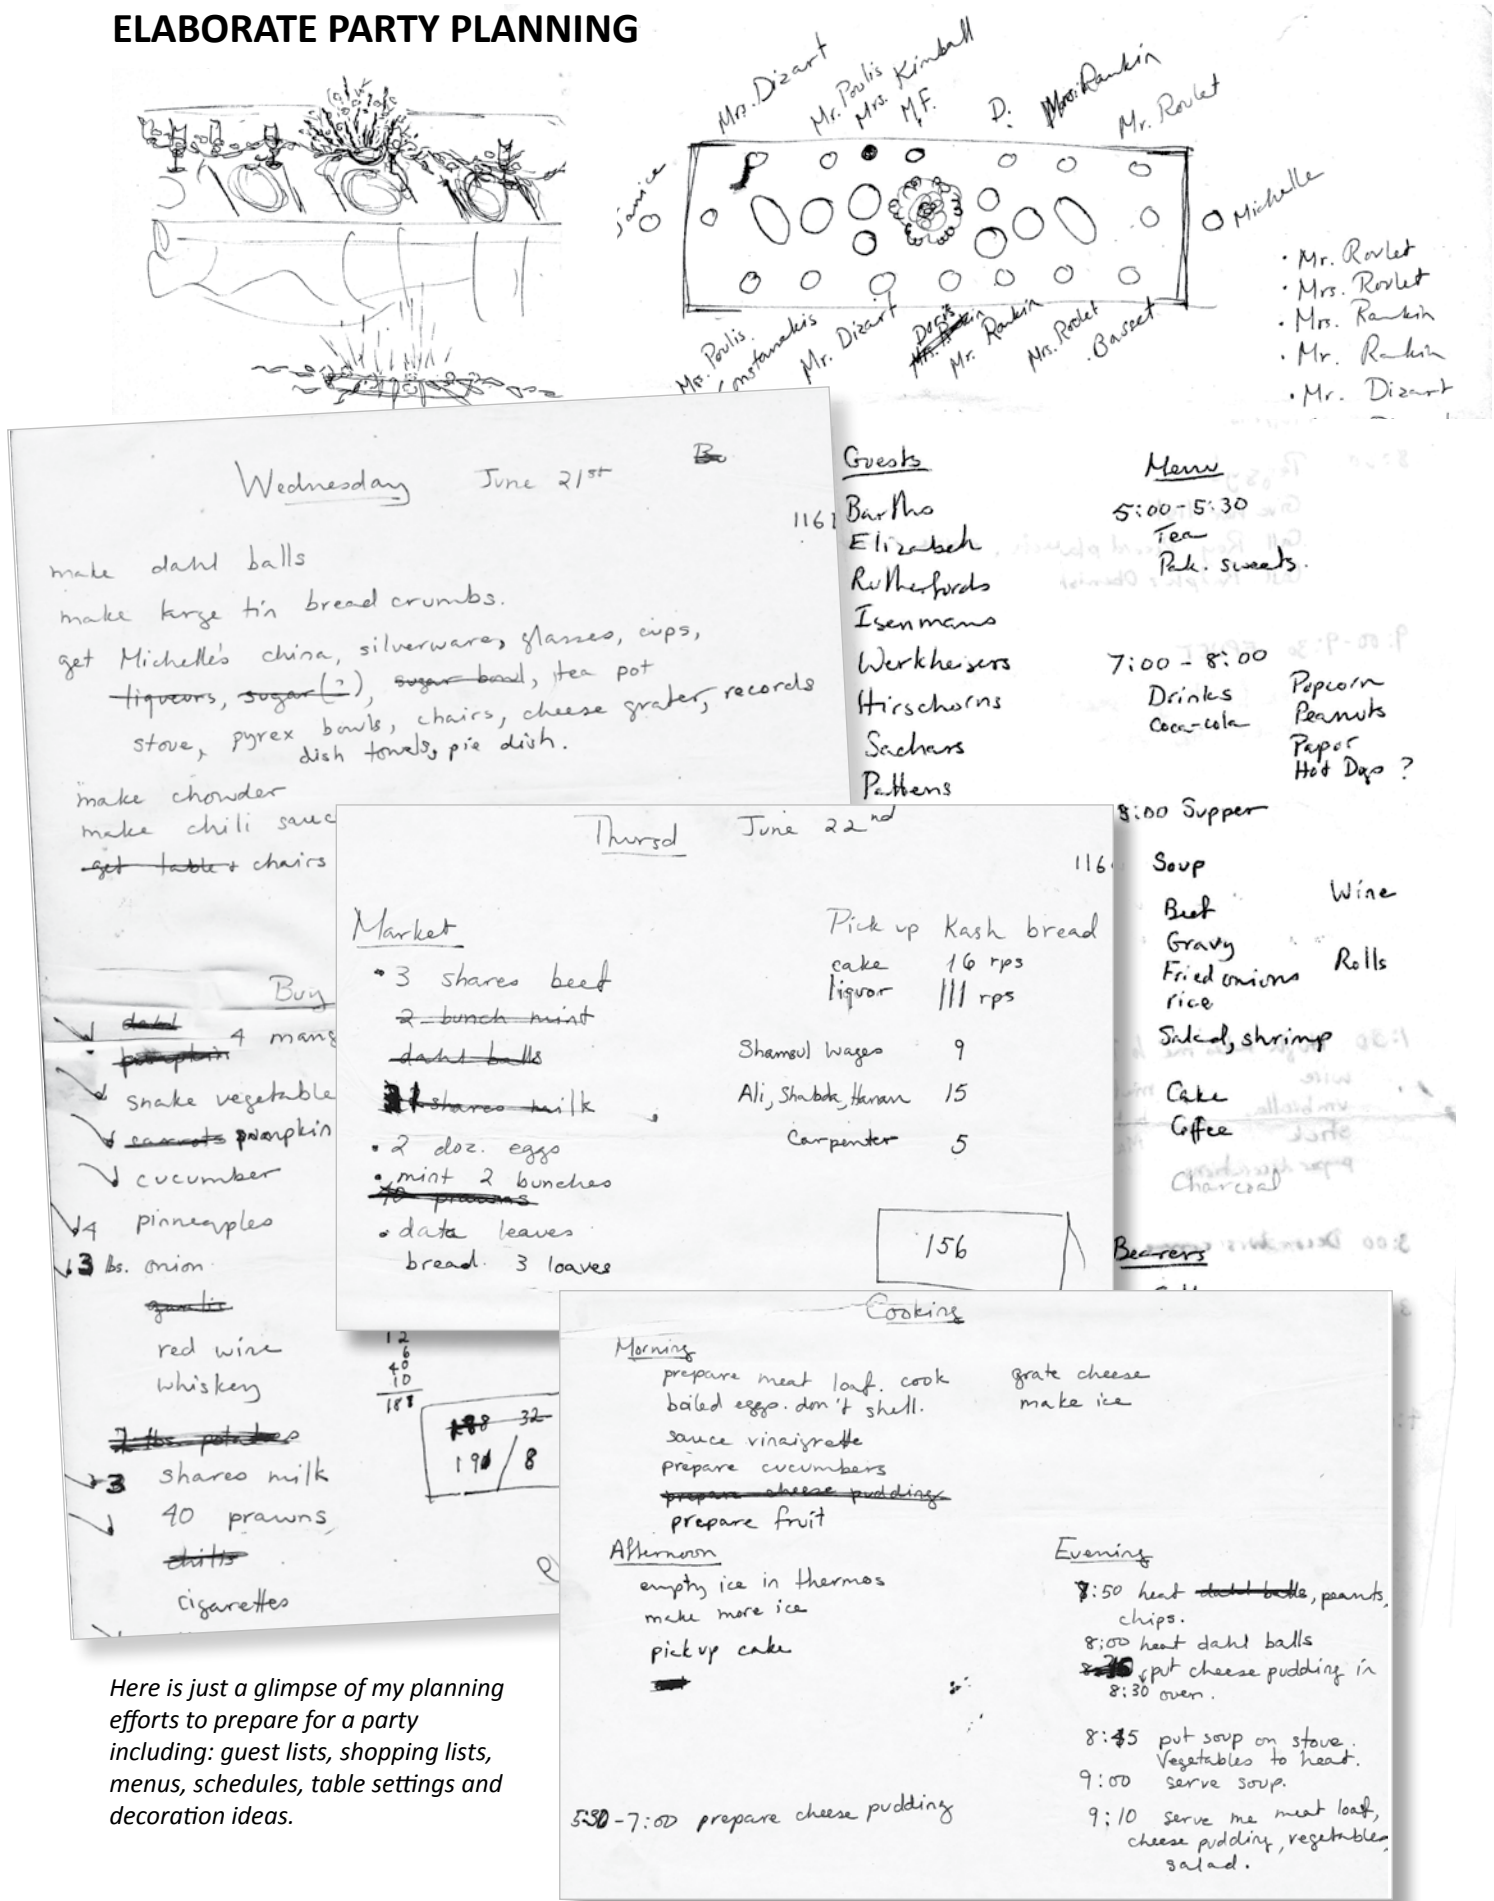 ELABORATE PARTY PLANNING
Mrs. Dizart
Mr. Poulis
Mrs. Kimball
M.F.
D.
Mrs. Rankin
Mr. Roulet
Janice
Michelle
Mrs. Poulis
Constamekis
Mr. Dizart
Doris
Mr. Rankin
Mrs. Roulet
Basset
• Mr. Roulet
• Mrs. Roulet
• Mrs. Rankin
• Mr. Rankin
• Mr. Dizart
Wednesday June 21st
1161
make dahl balls
make large tin bread crumbs.
get Michelle's china, silverware, glasses, cups,
liqueurs, sugar (?), sugar bowl, tea pot
stove, pyrex bowls, chairs, cheese grater, records
dish towels, pie dish.
make chowder
make chili sauc
get table + chairs
Buy
dahl
4 mang
pumpkin
snake vegetable
carrots pumpkin
cucumber
4 pinneapples
3 lbs. onion
garlic
red wine
whiskey
2 lbs. potatoes
3 shares milk
40 prawns
chilis
cigarettes
12
6
40
10
188
188 32
191 / 8
Guests
Bartho
Elizabeh
Rutherfords
Isenmans
Werkheisers
Hirschorns
Sachars
Pattens
Menu
5:00-5:30
Tea
Pak. sweets.
7:00 - 8:00
Drinks Popcorn
Coca-cola Peanuts
Papor
Hot Dogs ?
8:00 Supper
Soup
Beef Wine
Gravy
Fried onions Rolls
rice
Salad, shrimp
Cake
Coffee
Charcoal
Bearers
Thursd June 22nd
116
Market
• 3 shares beef
2 bunch mint
dahl balls
shares milk
• 2 doz. eggs
• mint 2 bunches
40 prawns
• data leaves
bread 3 loaves
Pick up Kash bread
cake 16 rps
liquor 111 rps
Shamsul Wages 9
Ali, Shabda, Hanan 15
Carpenter 5
156
Cooking
Morning
prepare meat loaf. cook grate cheese
boiled eggs. don't shell. make ice
sauce vinaigrette
prepare cucumbers
prepare cheese pudding
prepare fruit
Afternoon
empty ice in thermos
make more ice
pick up cake
5:30-7:00 prepare cheese pudding
Evening
7:50 heat dahl balls, peanuts,
chips.
8:00 heat dahl balls
put cheese pudding in
8:30 oven.
8:45 put soup on stove.
Vegetables to heat.
9:00 serve soup.
9:10 serve me meat loaf,
cheese pudding, vegetables
salad.
Here is just a glimpse of my planning
efforts to prepare for a party
including: guest lists, shopping lists,
menus, schedules, table settings and
decoration ideas.